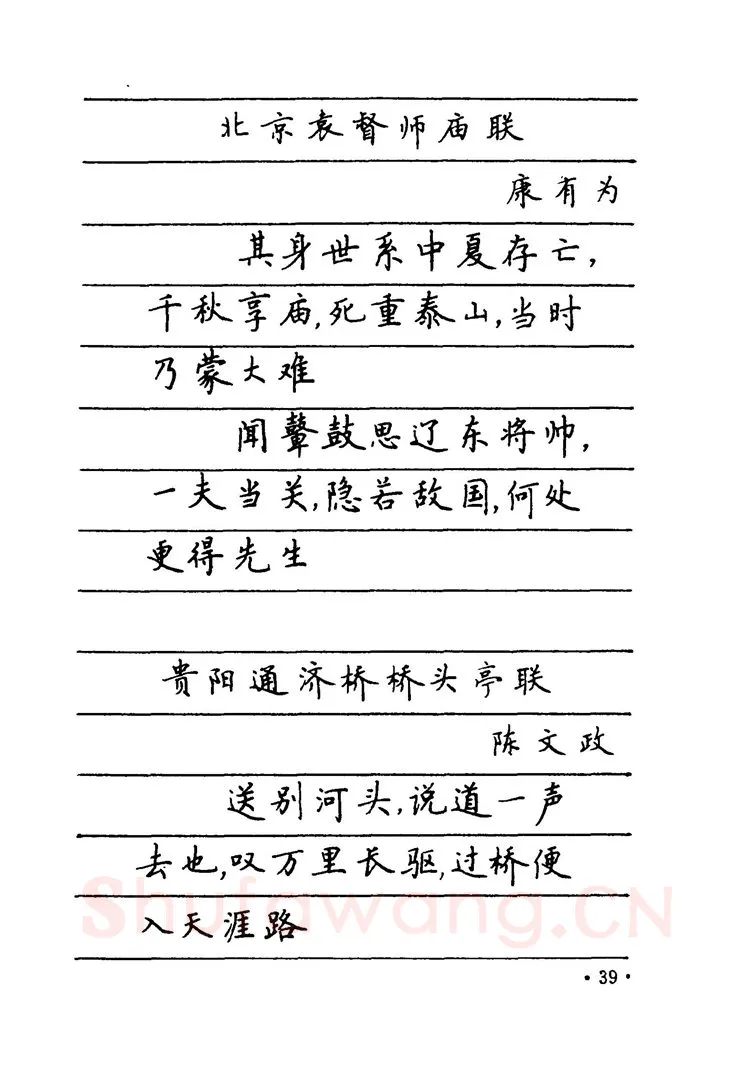 北京袁督师庙联
康有为
其身世系中夏存亡，
千秋享庙,死重泰山,当时
乃蒙大难
闻鼙鼓思辽东将帅，
一夫当关,隐若敌国,何处
更得先生
贵阳通济桥桥头亭联
陈文政
送别河头,说道一声
去也,叹万里长驱,过桥便
入天涯路
Shufawang.CN
·39·